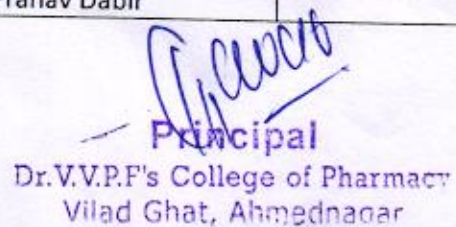 Pranav Dabir
Principal
Dr.V.V.P.F's College of Pharmacy
Vilad Ghat, Ahmednagar